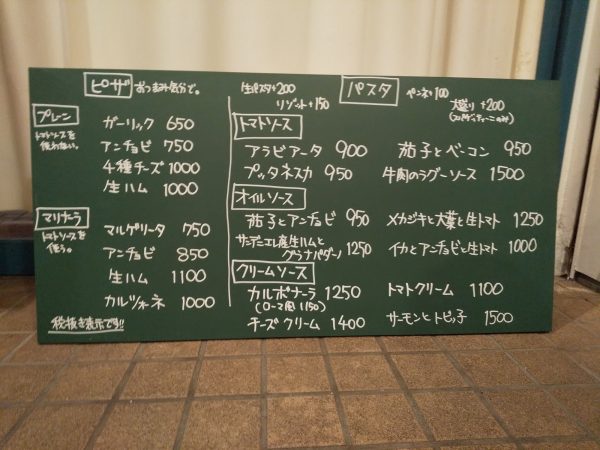 ピザ おつまみ気分で。
プレーン
トマトソースを
使わない。
ガーリック 650
アンチョビ 750
4種チーズ 1000
生ハム 1000
マリナーラ
トマトソースを
使う。
マルゲリータ 750
アンチョビ 850
生ハム 1100
カルツォーネ 1000
税抜き表示です!!
生パスタ+200
リゾット+150
パスタ
ペンネ+100
大盛り+200
(スパゲッティーニのみ)
トマトソース
アラビアータ 900
茄子とベーコン 950
プッタネスカ 950
牛肉のラグーソース 1500
オイルソース
茄子とアンチョビ 950
メカジキと大葉と生トマト 1250
サンダニエレ産生ハムと
グラナパダーノ 1250
イカとアンチョビと生トマト 1000
クリームソース
カルボナーラ 1250
(ローマ風 1150)
トマトクリーム 1100
チーズクリーム 1400
サーモンとトビッ子 1500